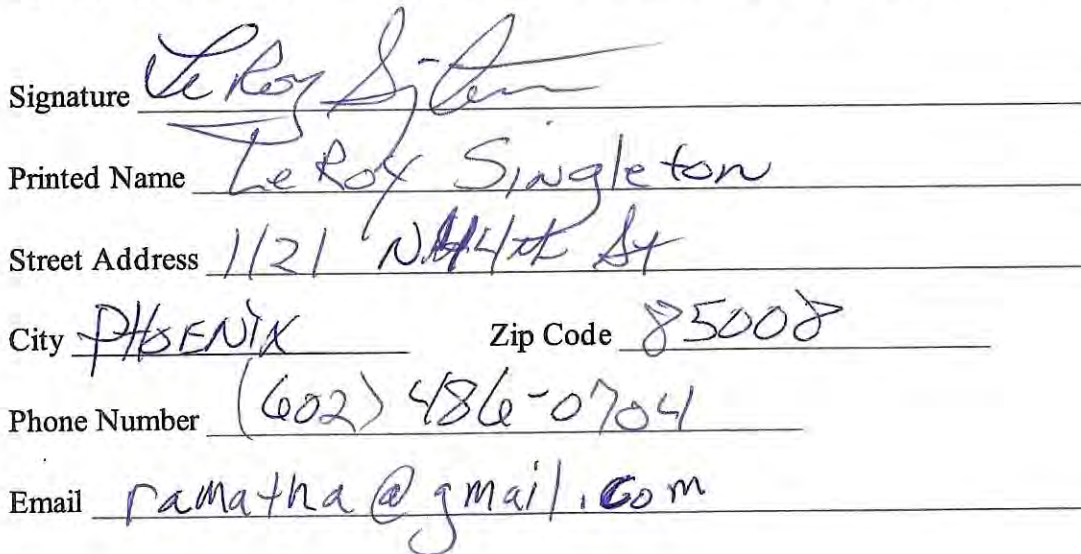 Signature LeRoy Singleton
Printed Name LeRoy Singleton
Street Address 1121 N. 44th St
City PHOENIX Zip Code 85008
Phone Number (602) 486-0704
Email ramatha@gmail.com